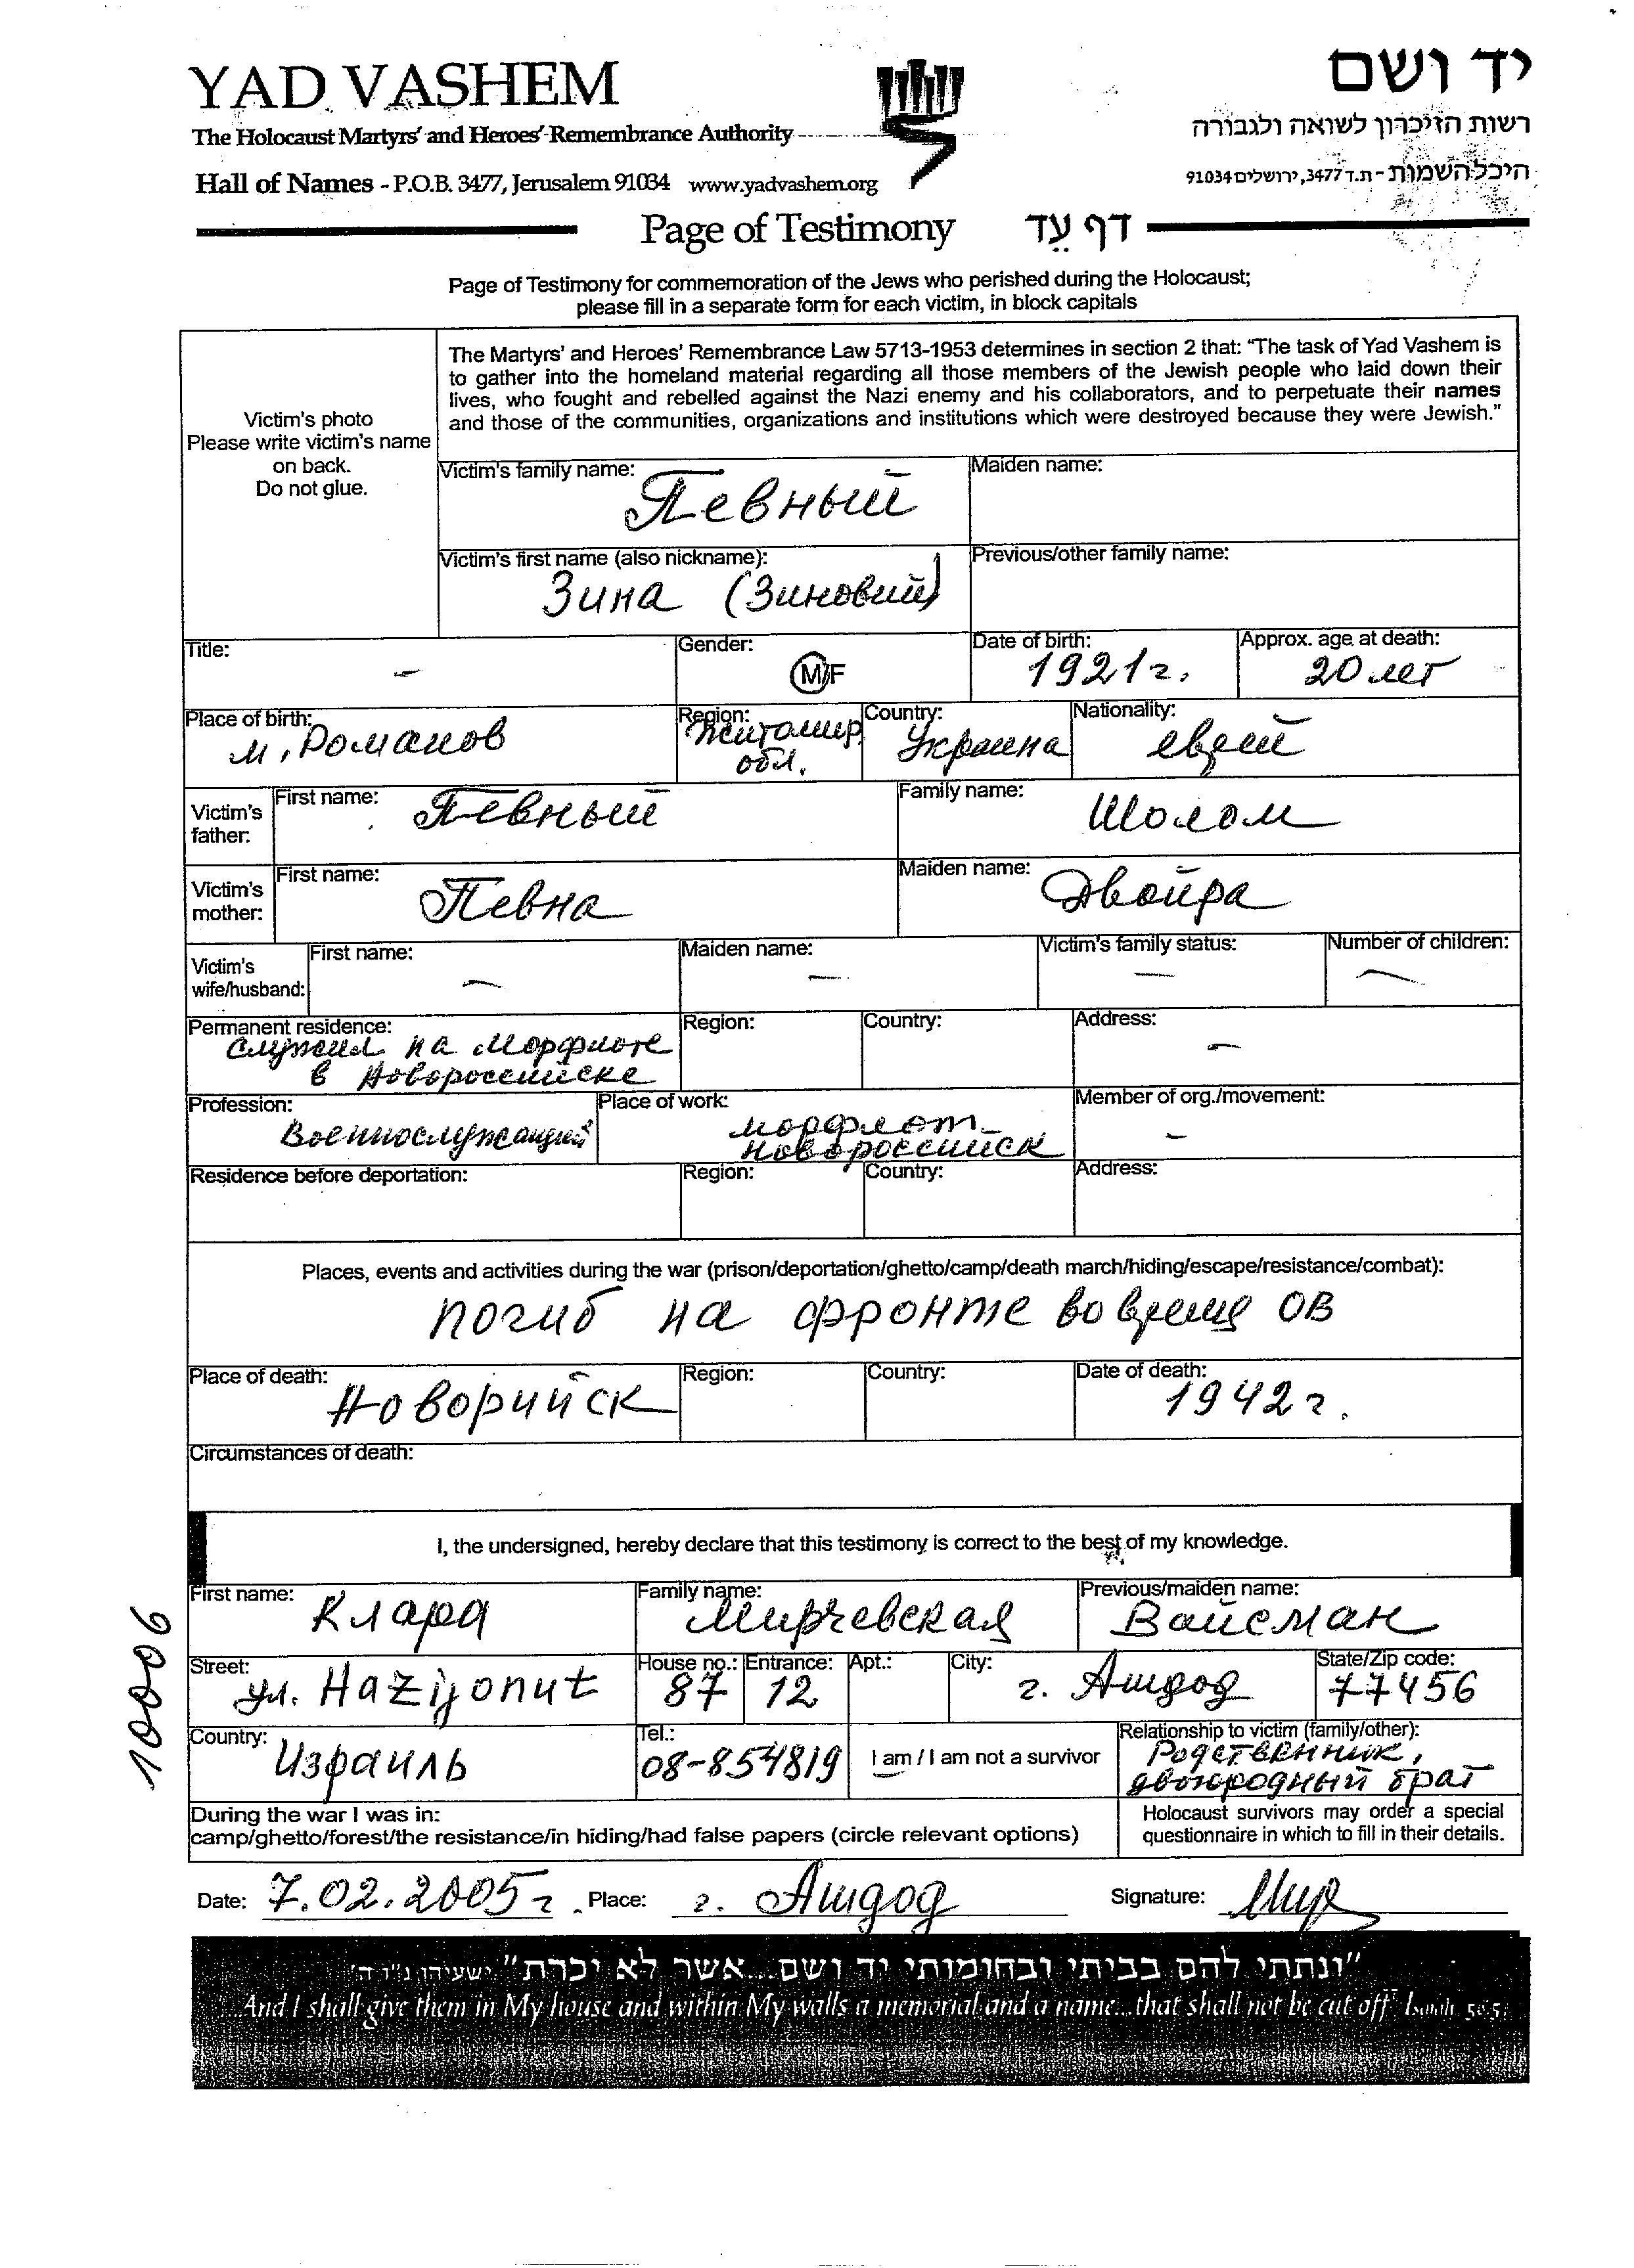 YAD VASHEM
יד ושם
The Holocaust Martyrs' and Heroes' Remembrance Authority
רשות הזיכרון לשואה ולגבורה
Hall of Names - P.O.B. 3477, Jerusalem 91034 www.yadvashem.org
היכל השמות - ת.ד 3477, ירושלים 91034
Page of Testimony דף עֵד
Page of Testimony for commemoration of the Jews who perished during the Holocaust;
please fill in a separate form for each victim, in block capitals
Victim's photo
Please write victim's name
on back.
Do not glue.
The Martyrs' and Heroes' Remembrance Law 5713-1953 determines in section 2 that: "The task of Yad Vashem is
to gather into the homeland material regarding all those members of the Jewish people who laid down their
lives, who fought and rebelled against the Nazi enemy and his collaborators, and to perpetuate their names
and those of the communities, organizations and institutions which were destroyed because they were Jewish."
Victim's family name: Певный
Maiden name:
Victim's first name (also nickname): Зина (Зиновий)
Previous/other family name:
Title: -
Gender: M/F
Date of birth: 1921г.
Approx. age at death: 20 лет
Place of birth: м. Романов
Region: Житомир обл.
Country: Украина
Nationality: еврей
Victim's father:
First name: Певный
Family name: Шолом
Victim's mother:
First name: Певна
Maiden name: Двойра
Victim's wife/husband:
First name: -
Maiden name: -
Victim's family status: -
Number of children: -
Permanent residence: служил на Морфлоте
в Новороссийске
Region:
Country:
Address: -
Profession: Военнослужащий
Place of work: морфлот
Новороссийск
Member of org./movement: -
Residence before deportation:
Region:
Country:
Address:
Places, events and activities during the war (prison/deportation/ghetto/camp/death march/hiding/escape/resistance/combat):
погиб на фронте во время ОВ
Place of death: Новорийск
Region:
Country:
Date of death: 1942г.
Circumstances of death:
I, the undersigned, hereby declare that this testimony is correct to the best of my knowledge.
First name: Клара
Family name: Мирчевская
Previous/maiden name: Вайсман
Street: ул. Hazijonut
House no.: 87
Entrance: 12
Apt.:
City: г. Ашдод
State/Zip code: 77456
Country: Израиль
Tel.: 08-854819
I am / I am not a survivor
Relationship to victim (family/other): Родственник,
двоюродный брат
During the war I was in:
camp/ghetto/forest/the resistance/in hiding/had false papers (circle relevant options)
Holocaust survivors may order a special
questionnaire in which to fill in their details.
Date: 7.02.2005г. Place: г. Ашдод Signature: Мир
10006
"ונתתי להם בביתי ובחומותי יד ושם...אשר לא יכרת" ישעיהו נ"ו ה'
And I shall give them in My house and within My walls a memorial and a name...that shall not be cut off. Isaiah 56:5